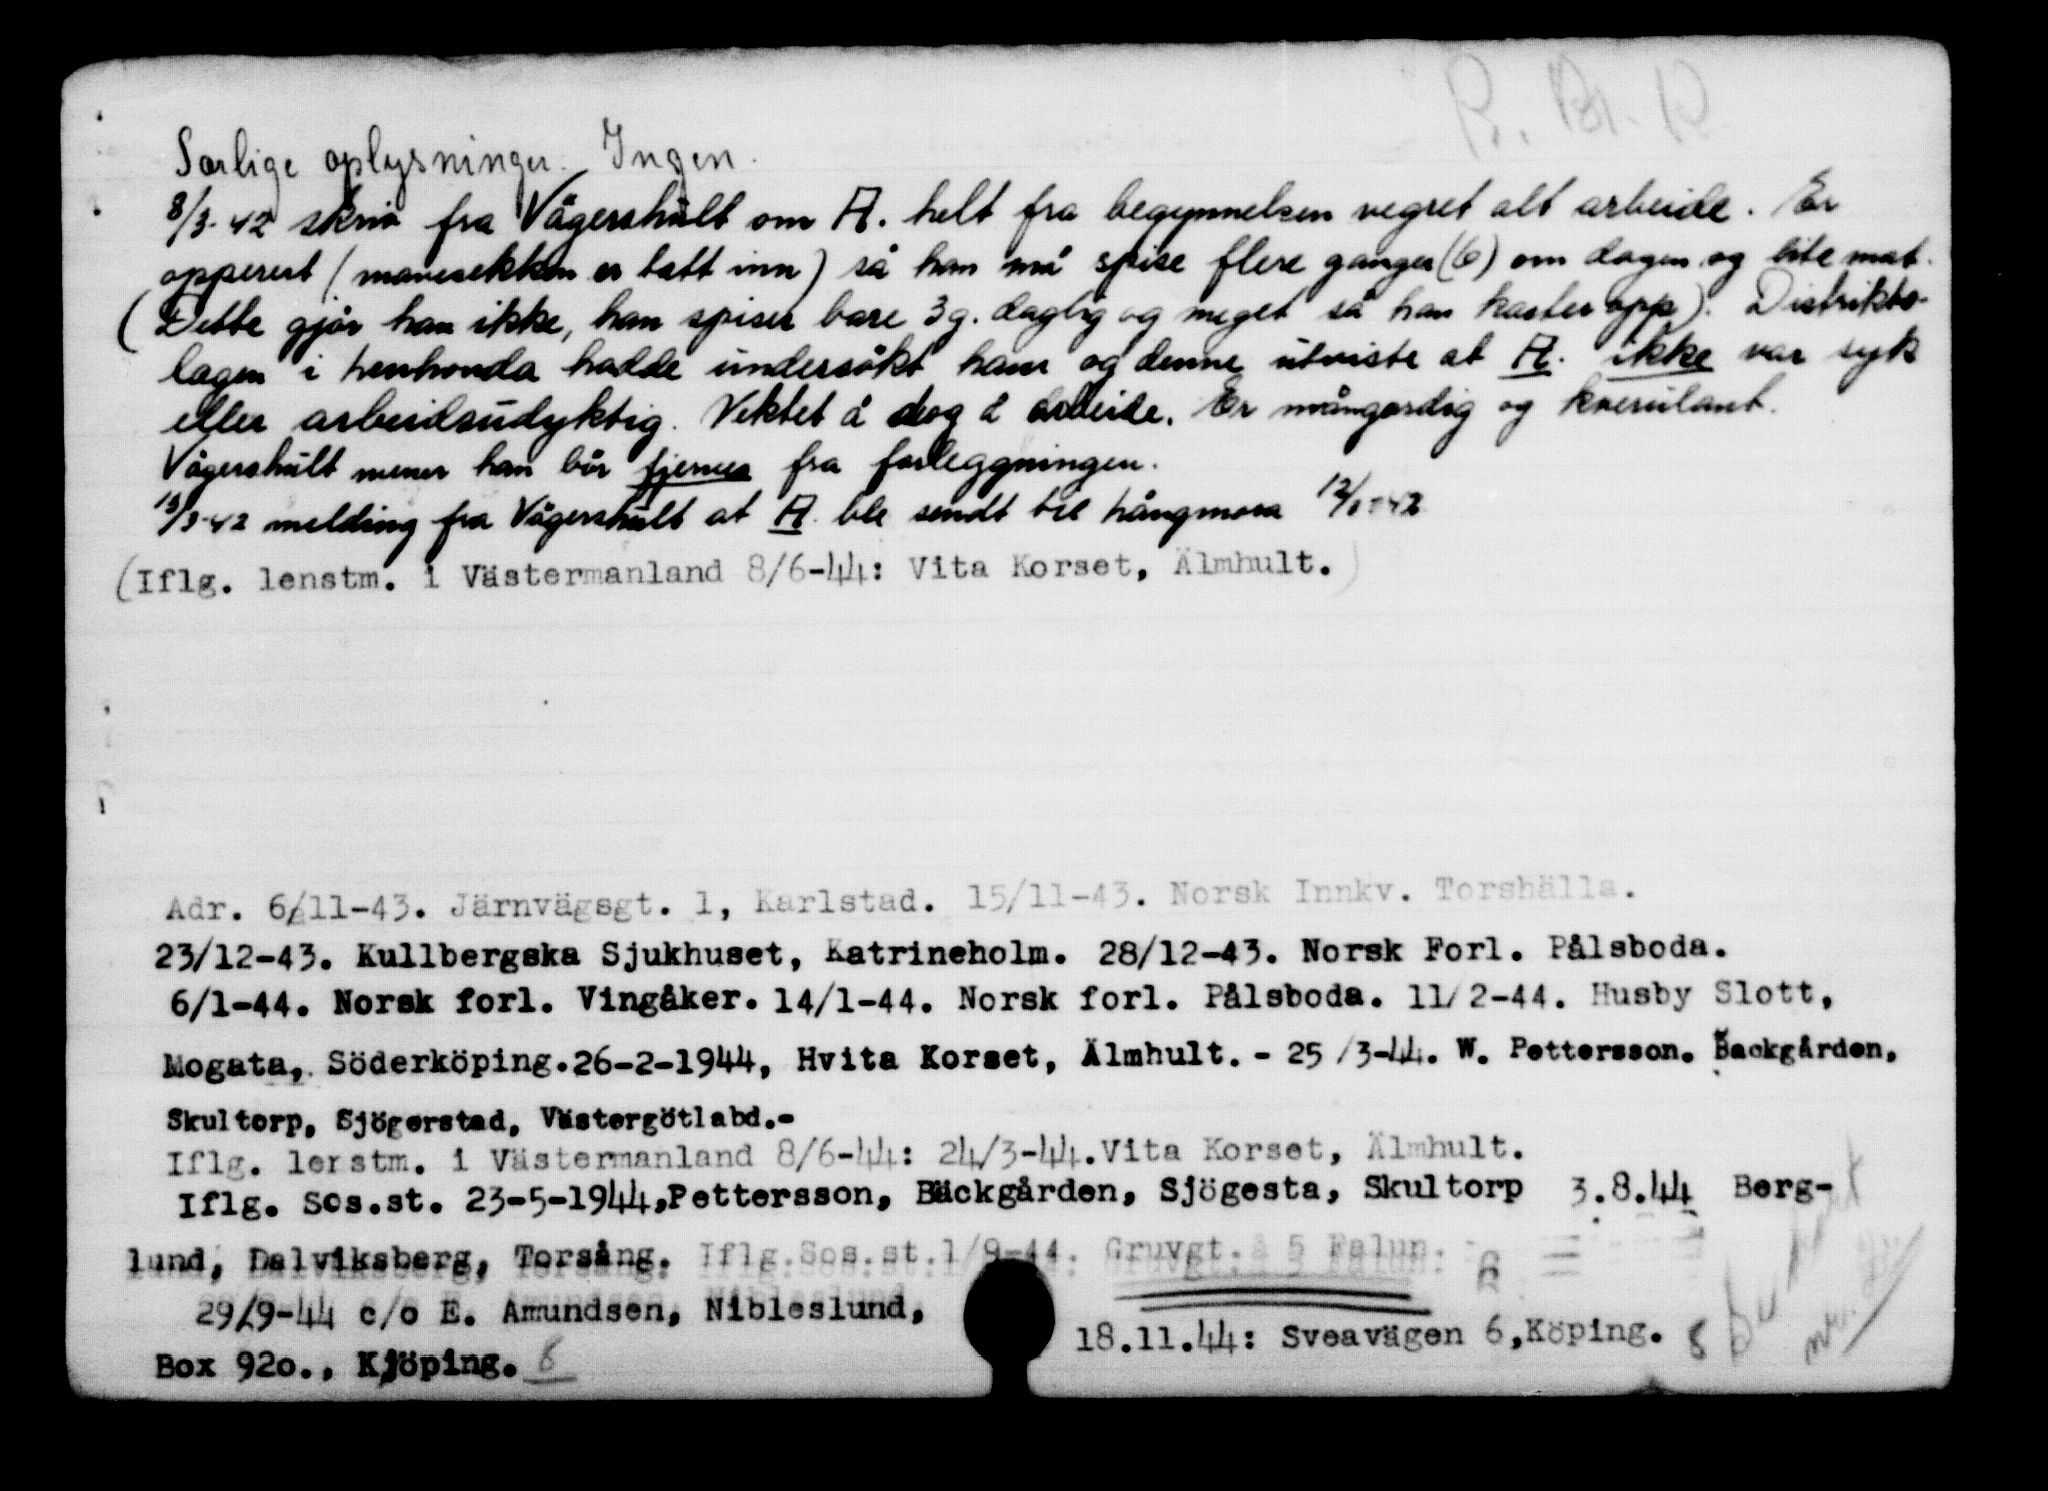 R. Bl. R.
Særlige oplysninger. Ingen.
8/3-42 skriv fra Vägershult om A. helt fra begynnelsen vegret alt arbeide. Er
opperert (mavesekken er tatt inn) så han må spise flere ganger (6) om dagen og lite mat.
(Dette gjör han ikke, han spiser bare 3 g. daglig og meget så han kaster opp). Distrikts-
lægen i Lenhovda hadde undersökt ham og denne utviste at A. ikke var syk
eller arbeidsudyktig. Vektet å dog å arbeide. Er mångordig og kverulant.
Vägershult mener han bör fjernes fra forleggningen.
13/3-42 melding fra Vägershult at A. ble sendt til Långmora 12/1-42
(Iflg. lenstm. i Västermanland 8/6-44: Vita Korset, Älmhult.)
Adr. 6/11-43. Järnvägsgt. 1, Karlstad. 15/11-43. Norsk Innkv. Torshälla.
23/12-43. Kullbergska Sjukhuset, Katrineholm. 28/12-43. Norsk Forl. Pålsboda.
6/1-44. Norsk forl. Vingåker. 14/1-44. Norsk forl. Pålsboda. 11/2-44. Husby Slott,
Mogata, Söderköping.26-2-1944, Hvita Korset, Älmhult. - 25 /3-44. W. Pettersson. Backgården,
Skultorp, Sjögerstad, Västergötlabd.-
Iflg. lerstm. i Västermanland 8/6-44: 24/3-44.Vita Korset, Älmhult.
Iflg. Sos.st. 23-5-1944,Pettersson, Bäckgården, Sjögesta, Skultorp 3.8.44 Berg-
lund, Dalviksberg, Torsång. Iflg.Sos.st.1/9-44. Gruvgt. 5 Falun.
29/9-44 c/o E. Amundsen, Nibleslund,
Box 92o., Kjöping. 8
18.11.44: Sveavägen 6,Köping. 8